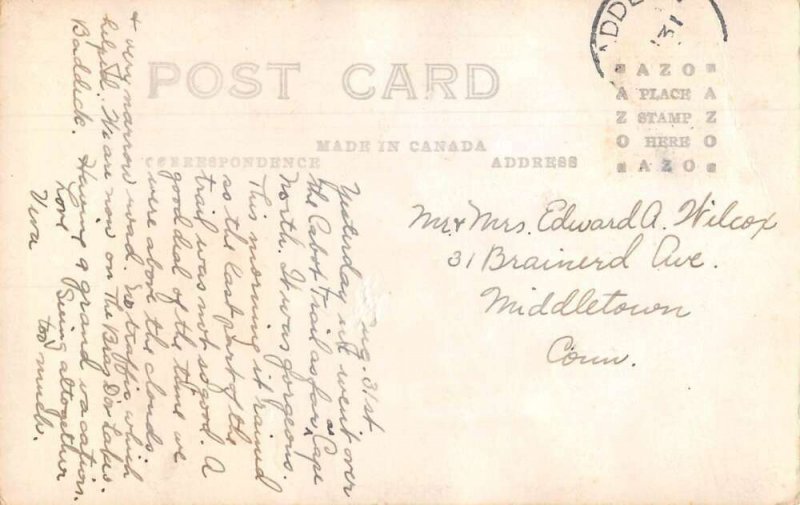 POST CARD
MADE IN CANADA
CORRESPONDENCE
ADDRESS
ADDE
31
AZO
A PLACE A
Z STAMP Z
O HERE O
AZO
Aug. 31st
Yesterday we went over
the Cabot Trail as far as Cape
North. It was gorgeous.
This morning it rained
so the last part of the
trail was not so good. A
good deal of the time we
were above the clouds
& very narrow road. No traffic which
helped. We are now on The Bras D'or Lakes.
Baddick. Having a grand vacation.
Seeing altogether
too much.
Love
Viva
Mr. & Mrs. Edward A. Wilcox
31 Brainerd Ave.
Middletown
Conn.